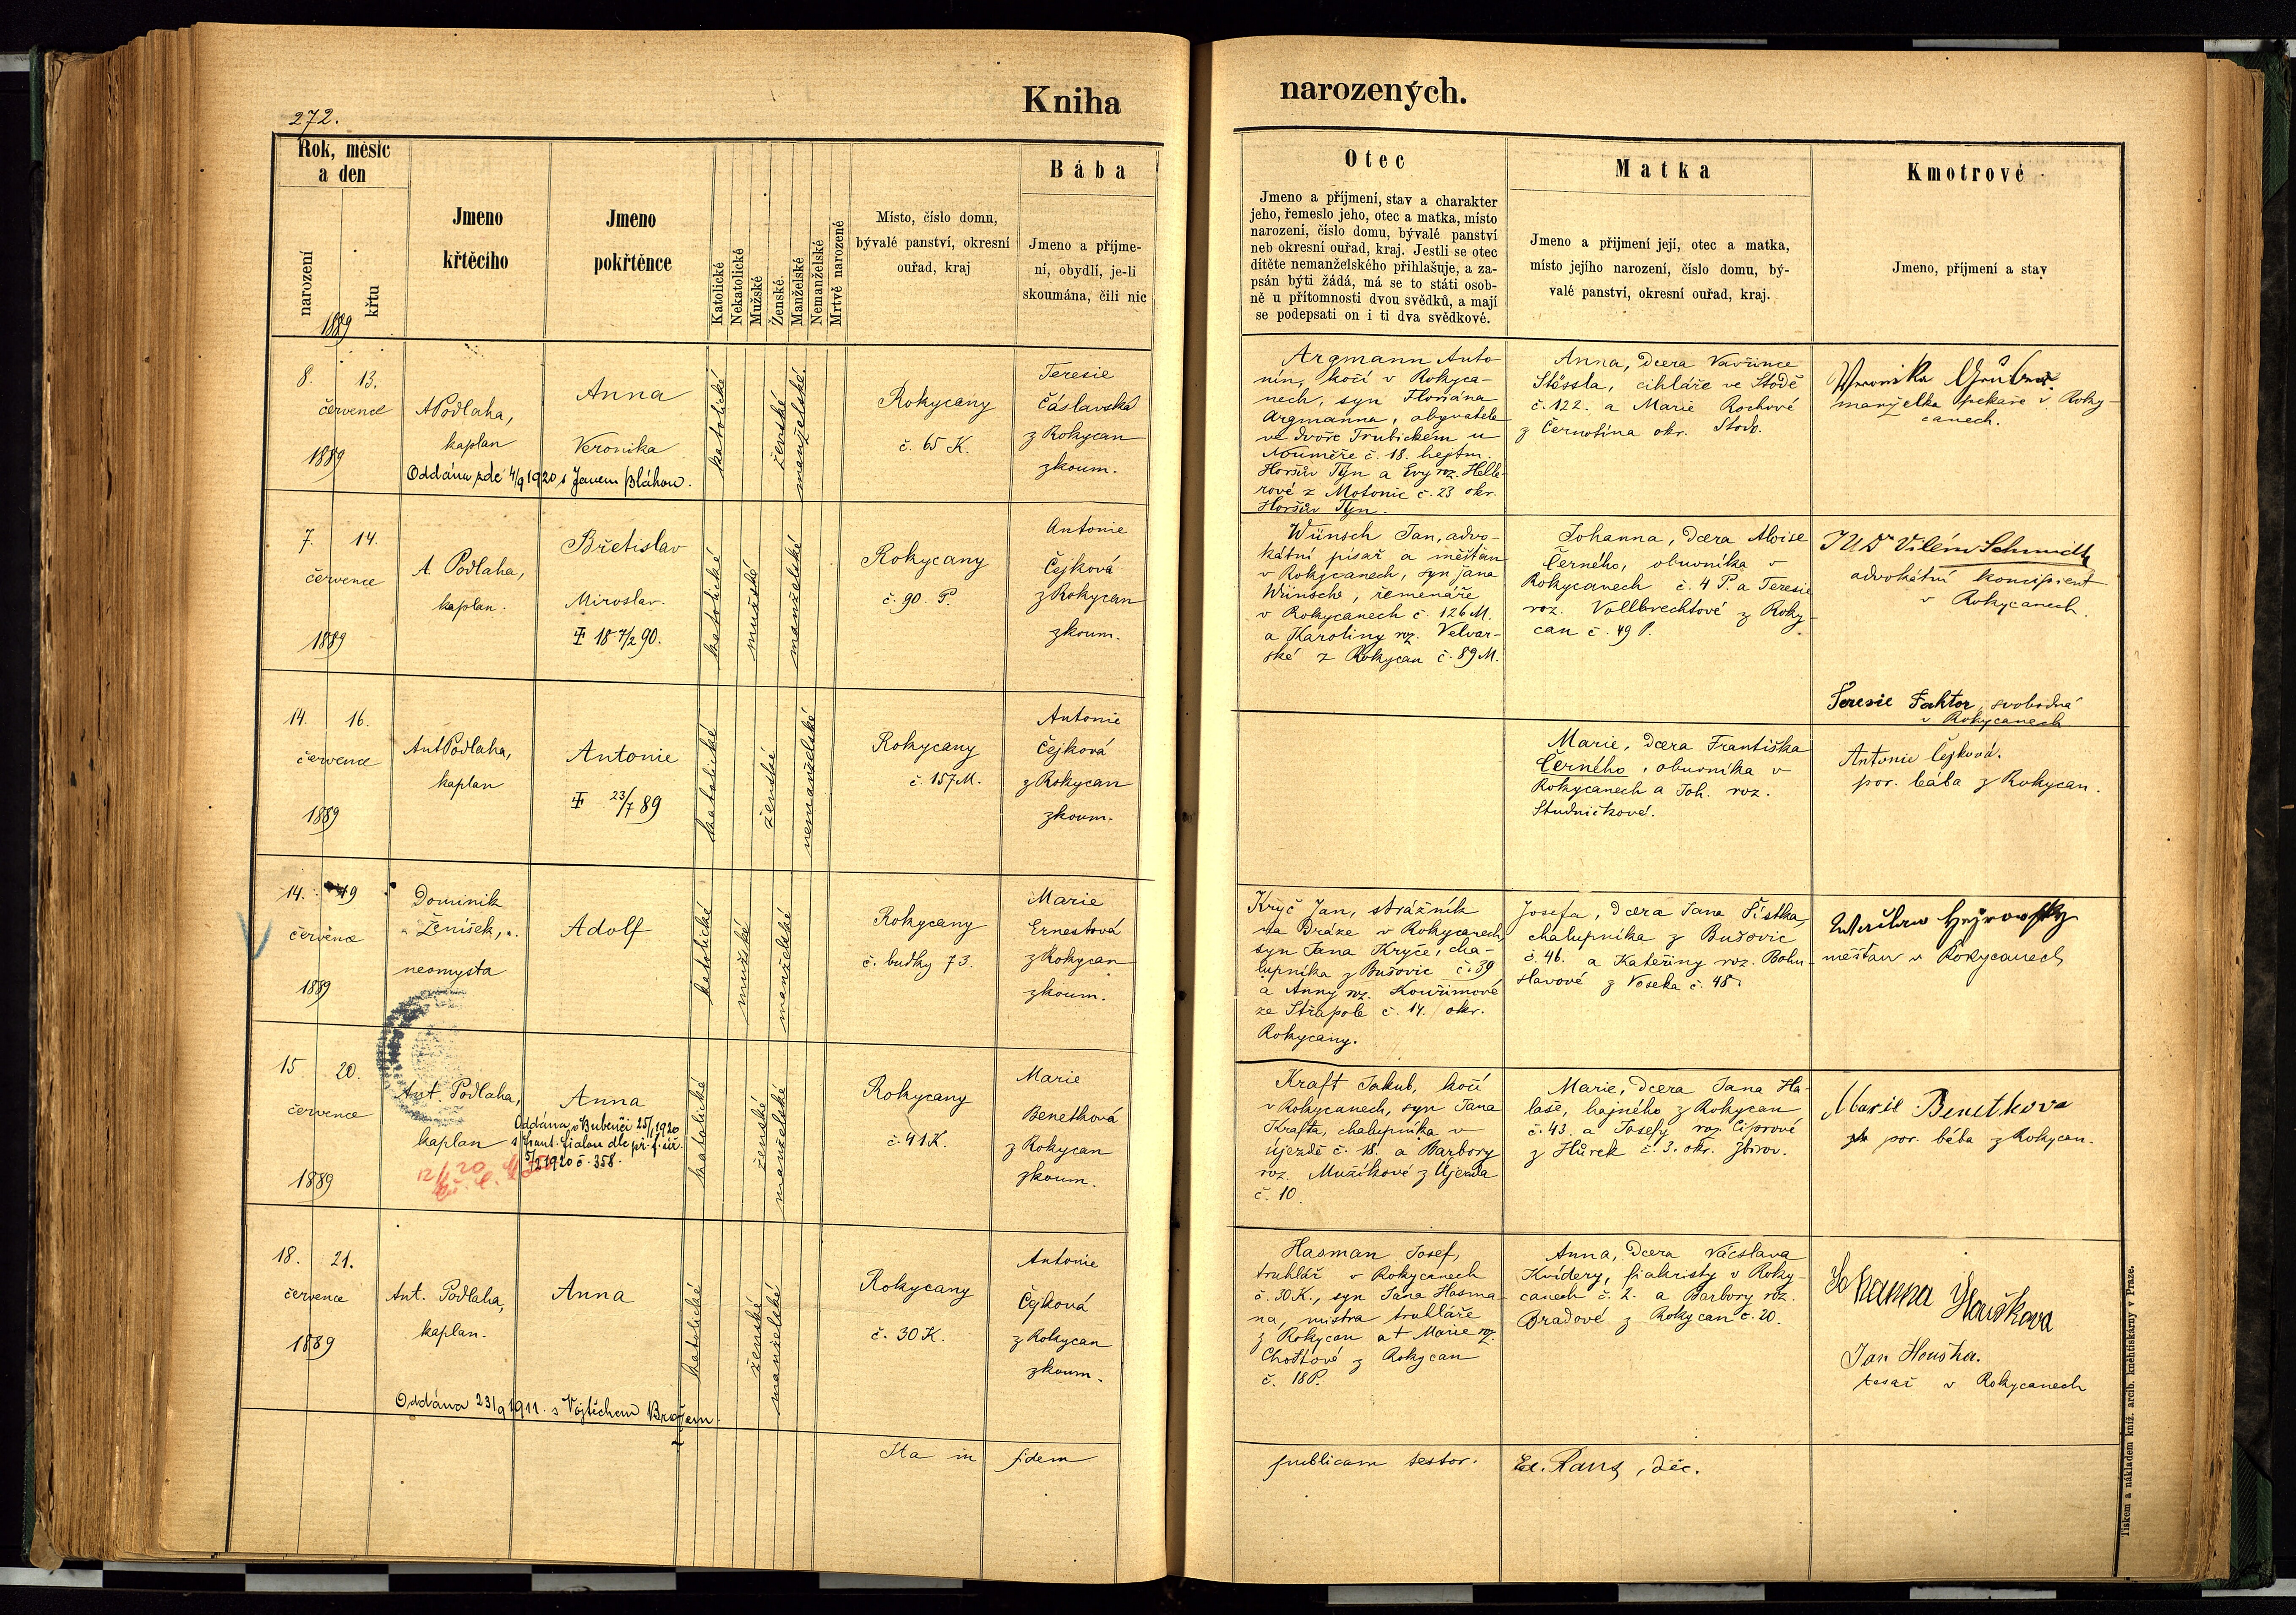 272.
Kniha
narozených.
Rok, měsíc
a den
narození
křtu
1889
Jmeno
křtěcího
Jmeno
pokřtěnce
Katolické
Nekatolické
Mužské
Ženské
Manželské
Nemanželské
Mrtvě narozené
Místo, číslo domu,
bývalé panství, okresní
ouřad, kraj
Bába
Jmeno a příjme-
ní, obydlí, je-li
skoumána, čili nic
Otec
Jmeno a příjmení, stav a charakter
jeho, řemeslo jeho, otec a matka, místo
narození, číslo domu, bývalé panství
neb okresní ouřad, kraj. Jestli se otec
dítěte nemanželského přihlašuje, a za-
psán býti žádá, má se to státi osob-
ně u přítomnosti dvou svědků, a mají
se podepsati on i ti dva svědkové.
Matka
Jmeno a přijmení její, otec a matka,
místo jejího narození, číslo domu, bý-
valé panství, okresní ouřad, kraj.
Kmotrové
Jmeno, přijmení a stav
8. 13.
července
1889
A Podlaha,
kaplan
Anna
Veronika
Oddána zde 4/9 1920 s Janem Bláhou.
katolické
ženské
manželské
Rokycany
č. 65 K.
Teresie
Čáslavská
z Rokycan
zkoum.
Argmann Anto-
nín, kočí v Rokyca-
nech, syn Floriána
Argmanna, obyvatele
ve dvoře Trubickém u
č. 18. hejtm.
Horšův Týn a Evy roz. Helle-
rové z Motonic č. 23 okr.
Horšův Týn.
Anna, dcera Vavřince
Stössla, cihláře ve Stodě
č. 122. a Marie Rochové
z Černotína okr. Stod.
Veronika Grüber
manželka pekaře v Roky-
canech.
7. 14.
července
1889
A. Podlaha,
kaplan.
Břetislav
Miroslav.
18 7/2 90.
katolické
mužské
manželské
Rokycany
č. 90. P.
Antonie
Čejková
z Rokycan
zkoum.
Wünsch Jan, advo-
kátní písař a měšťan
v Rokycanech, syn Jana
Wünsche, řemenáře
v Rokycanech č. 126 M.
a Karoliny roz. Velvar-
ské z Rokycan č. 89 M.
Johanna, dcera Aloise
Černého, obuvníka v
Rokycanech č. 4 P. a Teresie
roz. Vollbrechtové z Roky-
can č. 49 P.
JUDr Vilém Schmidt
advokátní koncipient
v Rokycanech.
Teresie Faktor, svobodná
v Rokycanech
14. 16.
července
1889
Ant Podlaha,
kaplan
Antonie
23/7 89
katolické
ženské
nemanželské
Rokycany
č. 157 M.
Antonie
Čejková
z Rokycan
zkoum.
Marie, dcera Františka
Černého, obuvníka v
Rokycanech a Joh. roz.
Studničkové.
Antonie Čejková.
por. bába z Rokycan.
14. 19
července
1889
Dominik
Ženíšek,
neomysta
Adolf
katolické
mužské
manželské
Rokycany
č. budky 73.
Marie
Ernestová
z Rokycan
zkoum.
Kryč Jan, strážník
na Dráze v Rokycanech,
syn Jana Kryče, cha-
lupníka z Bušovic č. 39
a Anny roz. Kouřimové
ze Střapole č. 14. okr.
Rokycany.
Josefa, dcera Jana Šístka,
chalupníka z Bušovic
č. 46. a Kateřiny roz. Bohu-
slavové z Voseka č. 48.
měšťan v Rokycanech
15 20.
července
1889
Ant. Podlaha,
kaplan
Anna
Oddána v Bubenči 25/1 1920
s Frant. Fialou dle př. f. úř.
5/2 1920 č. 358.
katolické
ženské
manželské
Rokycany
č. 41 K.
Marie
Benetková
z Rokycan
zkoum.
Kraft Jakub, kočí
v Rokycanech, syn Jana
Krafta, chalupníka v
Újezdě č. 18. a Barbory
roz. Mužíkové z Újezda
č. 10.
Marie, dcera Jana Ha-
laše, hajného z Rokycan
č. 43. a Josefy roz. Ciprové
z Hůrek č. 3. okr. Zbirov.
Marie Benetkova
por. bába z Rokycan.
18. 21.
července
1889
Ant. Podlaha,
kaplan.
Anna
Oddána 23/9 1911. s Vojtěchem Brožem.
katolické
ženské
manželské
Rokycany
č. 30 K.
Antonie
Čejková
z Rokycan
zkoum.
Hasman Josef,
truhlář v Rokycanech
č. 30 K., syn Jana Hasma-
na, mistra truhláře
z Rokycan a † Marie roz.
Chodtové z Rokycan
č. 18 P.
Anna, dcera Vácslava
Kvídery, fiakristy v Roky-
canech č. 2. a Barbory roz.
Bradové z Rokycan č. 20.
Johanna Houškova
Jan Houška.
tesař v Rokycanech
Ita in fidem publicam testor. Ed. Rang, děk.
Tiskem a nákladem kníž. arcib. knihtiskárny v Praze.